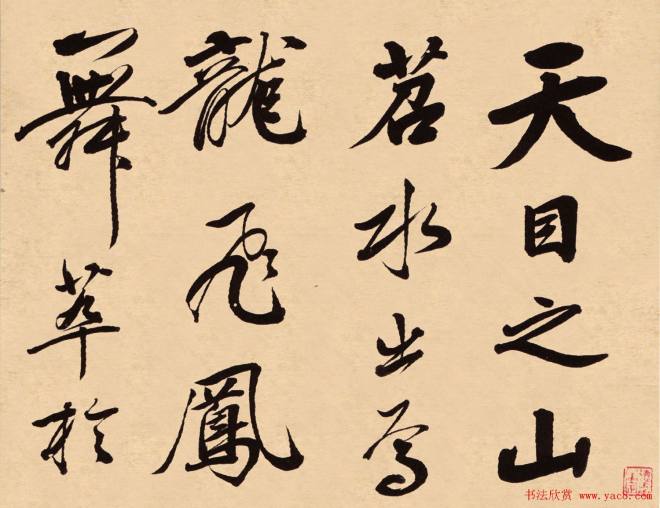 天目之山
苕水出焉
龍飛鳳
舞萃於
书法欣赏 www.yac8.com